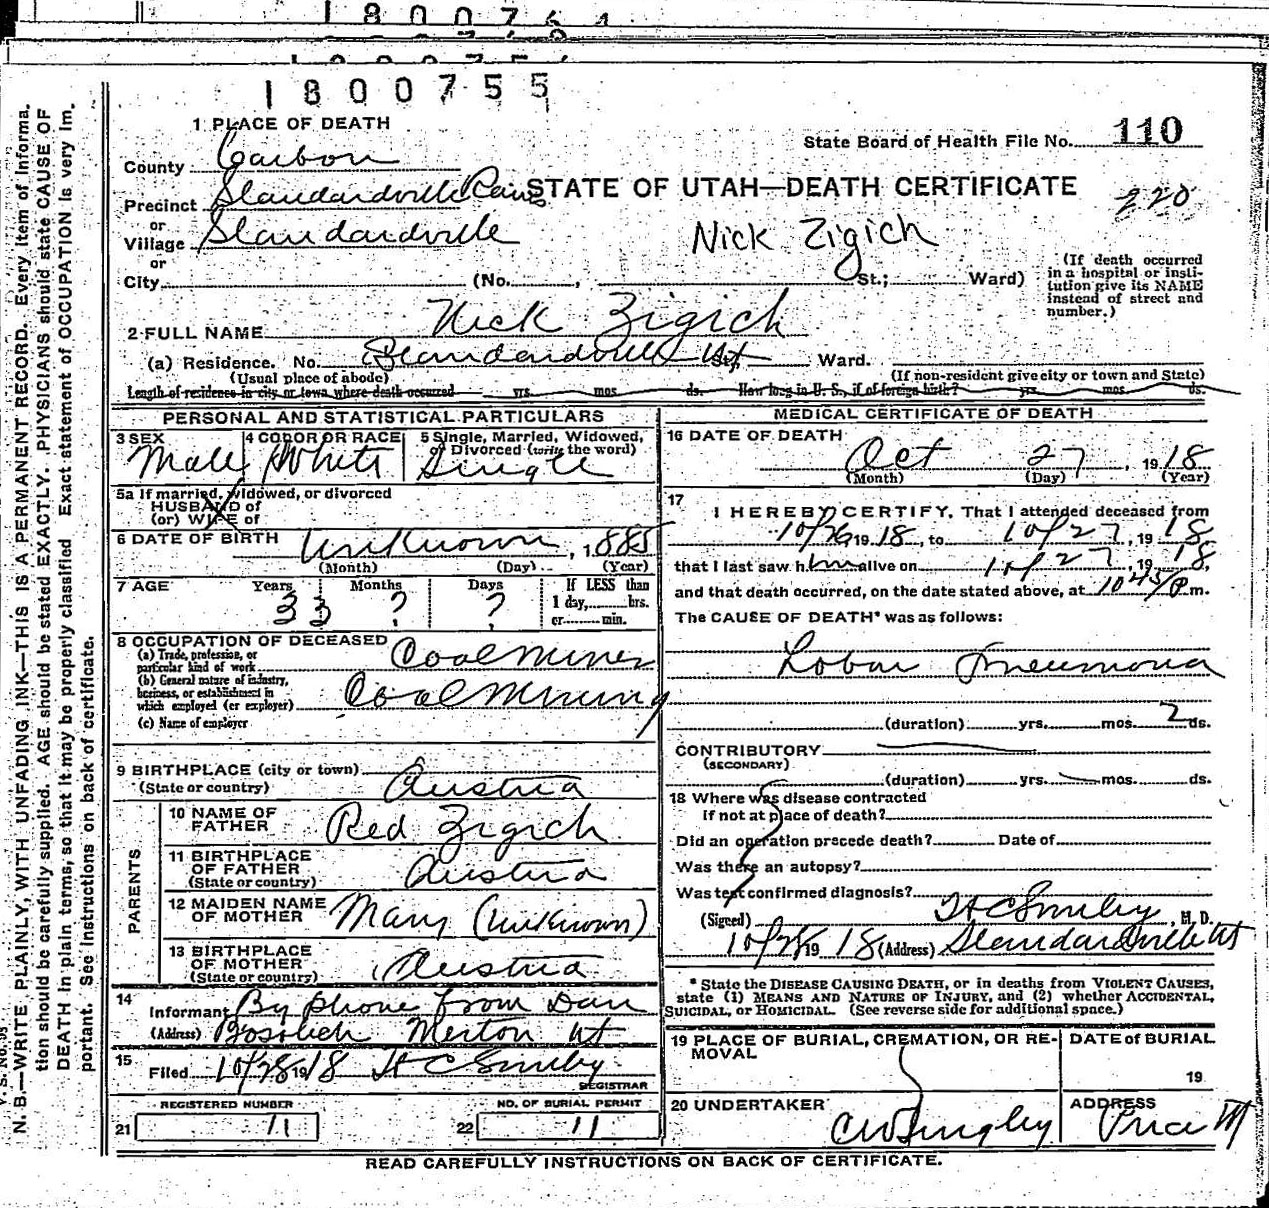 1800764
1800755
1 PLACE OF DEATH
State Board of Health File No. 110
County Carbon
Precinct Standardville
STATE OF UTAH—DEATH CERTIFICATE
220
or
Village Standardville
Nick Zigich
or
City (No. , St.; Ward)
(If death occurred in a hospital or insti-
tution give its NAME instead of street and number.)
2 FULL NAME Nick Zigich
(a) Residence. No. Standardville Ut St., Ward.
(Usual place of abode) (If non-resident give city or town and State)
Length of residence in city or town where death occurred yrs. mos. ds. How long in U. S., if of foreign birth? yrs. mos. ds.
PERSONAL AND STATISTICAL PARTICULARS
3 SEX Male
4 COLOR OR RACE White
5 Single, Married, Widowed, or Divorced (write the word) Single
5a If married, widowed, or divorced
HUSBAND of
(or) WIFE of
6 DATE OF BIRTH Unknown, 1885
(Month) (Day) (Year)
7 AGE Years Months Days If LESS than
33 ? ? 1 day, hrs.
or min.
8 OCCUPATION OF DECEASED
(a) Trade, profession, or particular kind of work Coal Miner
(b) General nature of industry, business, or establishment in which employed (or employer) Coal Mining
(c) Name of employer
9 BIRTHPLACE (city or town)
(State or country) Austria
PARENTS
10 NAME OF FATHER Red Zigich
11 BIRTHPLACE OF FATHER (State or country) Austria
12 MAIDEN NAME OF MOTHER Mary (Unknown)
13 BIRTHPLACE OF MOTHER (State or country) Austria
14 Informant By phone from Dan
(Address) Merton Ut
15 Filed 10/28 1918 H C Smiley
REGISTRAR
REGISTERED NUMBER
21 11
NO. OF BURIAL PERMIT
22 11
MEDICAL CERTIFICATE OF DEATH
16 DATE OF DEATH
Oct 27, 1918
(Month) (Day) (Year)
17 I HEREBY CERTIFY, That I attended deceased from
10/26 1918, to 10/27, 1918,
that I last saw him alive on 10/27, 1918,
and that death occurred, on the date stated above, at 10 45/P m.
The CAUSE OF DEATH* was as follows:
Lobar Pneumonia
(duration) yrs. mos. 2 ds.
CONTRIBUTORY
(SECONDARY)
(duration) yrs. mos. ds.
18 Where was disease contracted
if not at place of death?
Did an operation precede death? Date of
Was there an autopsy?
Was test confirmed diagnosis?
(Signed) H C Smiley, M. D.
10/28 1918 (Address) Standardville Ut
* State the DISEASE CAUSING DEATH, or in deaths from VIOLENT CAUSES,
state (1) MEANS AND NATURE OF INJURY, and (2) whether ACCIDENTAL,
SUICIDAL, or HOMICIDAL. (See reverse side for additional space.)
19 PLACE OF BURIAL, CREMATION, OR RE-
MOVAL
DATE of BURIAL
19
20 UNDERTAKER
ADDRESS
Price Ut
READ CAREFULLY INSTRUCTIONS ON BACK OF CERTIFICATE.
N. B.—WRITE PLAINLY, WITH UNFADING INK—THIS IS A PERMANENT RECORD. Every item of informa-
tion should be carefully supplied. AGE should be stated EXACTLY. PHYSICIANS should state CAUSE OF
DEATH in plain terms, so that it may be properly classified. Exact statement of OCCUPATION is very im-
portant. See instructions on back of certificate.